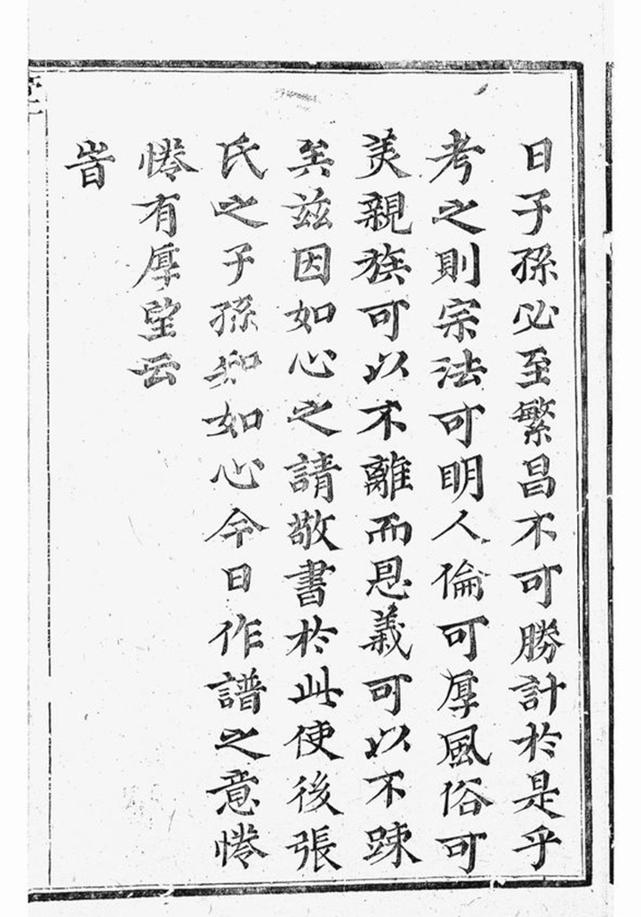 日子孫必至繁昌不可勝計於是乎
考之則宗法可明人倫可厚風俗可
美親族可以不離而恩義可以不踈
矣茲因如心之請敬書於此使後張
氏之子孫知如心今日作譜之意惓
惓有厚望云